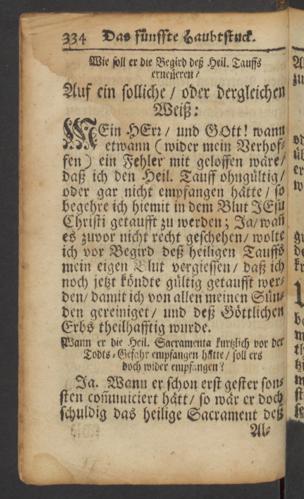 334 Das fünffte Haubtstuck.
Wie soll er die Begird deß Heil. Tauffs
erneüeren /
Auf ein solliche / oder dergleichen
Weiß:
MEin HErr / und GOtt! wann
etwann (wider mein Verhof-
fen) ein Fehler mit geloffen wäre /
daß ich den Heil. Tauff ohngültig /
oder gar nicht empfangen hätte / so
begehre ich hiemit in dem Blut JEsu
Christi getaufft zu werden; Ja / wan
es zuvor nicht recht geschehen / wolte
ich vor Begird deß heiligen Tauffs
mein eigen Blut vergiessen / daß ich
noch jetzt köndte gültig getaufft wer-
den / damit ich von allen meinen Sün-
den gereiniget / und deß Göttlichen
Erbs theilhafftig wurde.
Wann er die Heil. Sacramenta kurtzlich vor der
Todts-Gefahr empfangen hätte / soll ers
doch wider empfangen?
Ja. Wann er schon erst gester son-
sten com̃uniciert hätt / so wär er doch
schuldig das heilige Sacrament deß
Al-